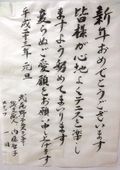 新年おめでとうございます
皆様が心地よくテニスを楽し
ますよう努めてまいります
変らぬご愛顧をお願い申上げます
平成二十三年 元旦